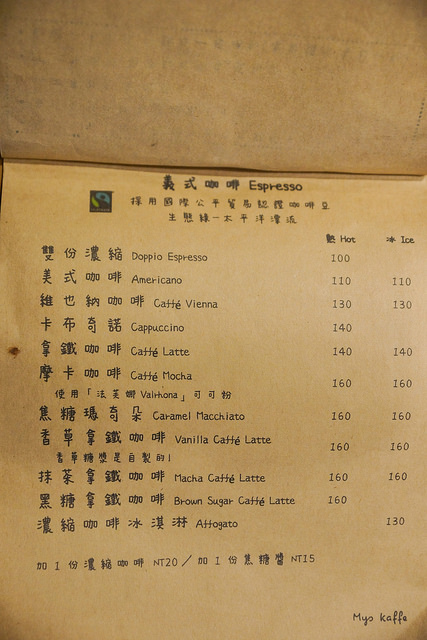 義式咖啡 Espresso
採用國際公平貿易認證咖啡豆
生態綠－太平洋濃派
熱 Hot 冰 Ice
雙份濃縮 Doppio Espresso 100
美式咖啡 Americano 110 110
維也納咖啡 Caffé Vienna 130 130
卡布奇諾 Cappuccino 140
拿鐵咖啡 Caffé Latte 140 140
摩卡咖啡 Caffé Mocha 160 160
使用「法芙娜 Valrhona」可可粉
焦糖瑪奇朵 Caramel Macchiato 160 160
香草拿鐵咖啡 Vanilla Caffé Latte 160 160
香草糖漿是自製的!
抹茶拿鐵咖啡 Macha Caffé Latte 160 160
黑糖拿鐵咖啡 Brown Sugar Caffé Latte 160
濃縮咖啡冰淇淋 Affogato 130
加1份濃縮咖啡 NT20 / 加1份焦糖醬 NT15
Myo kaffe